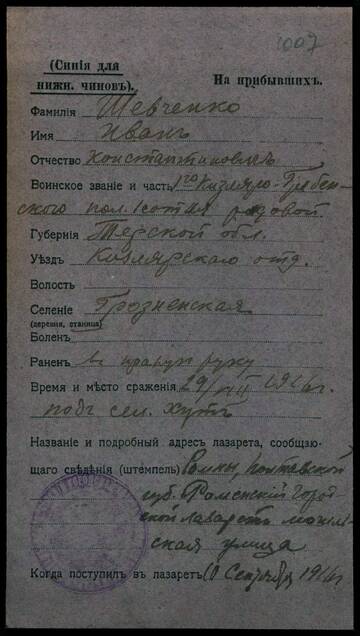 1007
(Синія для
нижн. чиновъ).
На прибывшихъ.
Фамилія Шевченко
Имя Иванъ
Отчество Константиновичъ
Воинское званіе и часть 1го Кизляро-Гребен-
ского пол. 1 сотня рядовой
Губернія Терской обл.
Уѣздъ Кизлярскаго отд.
Волость
Селеніе Грозненская
(деревня, станица)
Боленъ
Раненъ въ правую руку
Время и мѣсто сраженія 29/VIII 1916 г.
подъ сел.
Названіе и подробный адресъ лазарета, сообщаю-
щаго свѣдѣнія (штемпель) Ромны, Полтавской
губ. Роменскій Город-
ской лазаретъ
ская улица
Когда поступилъ въ лазаретъ 10 Сентября 1916 г.